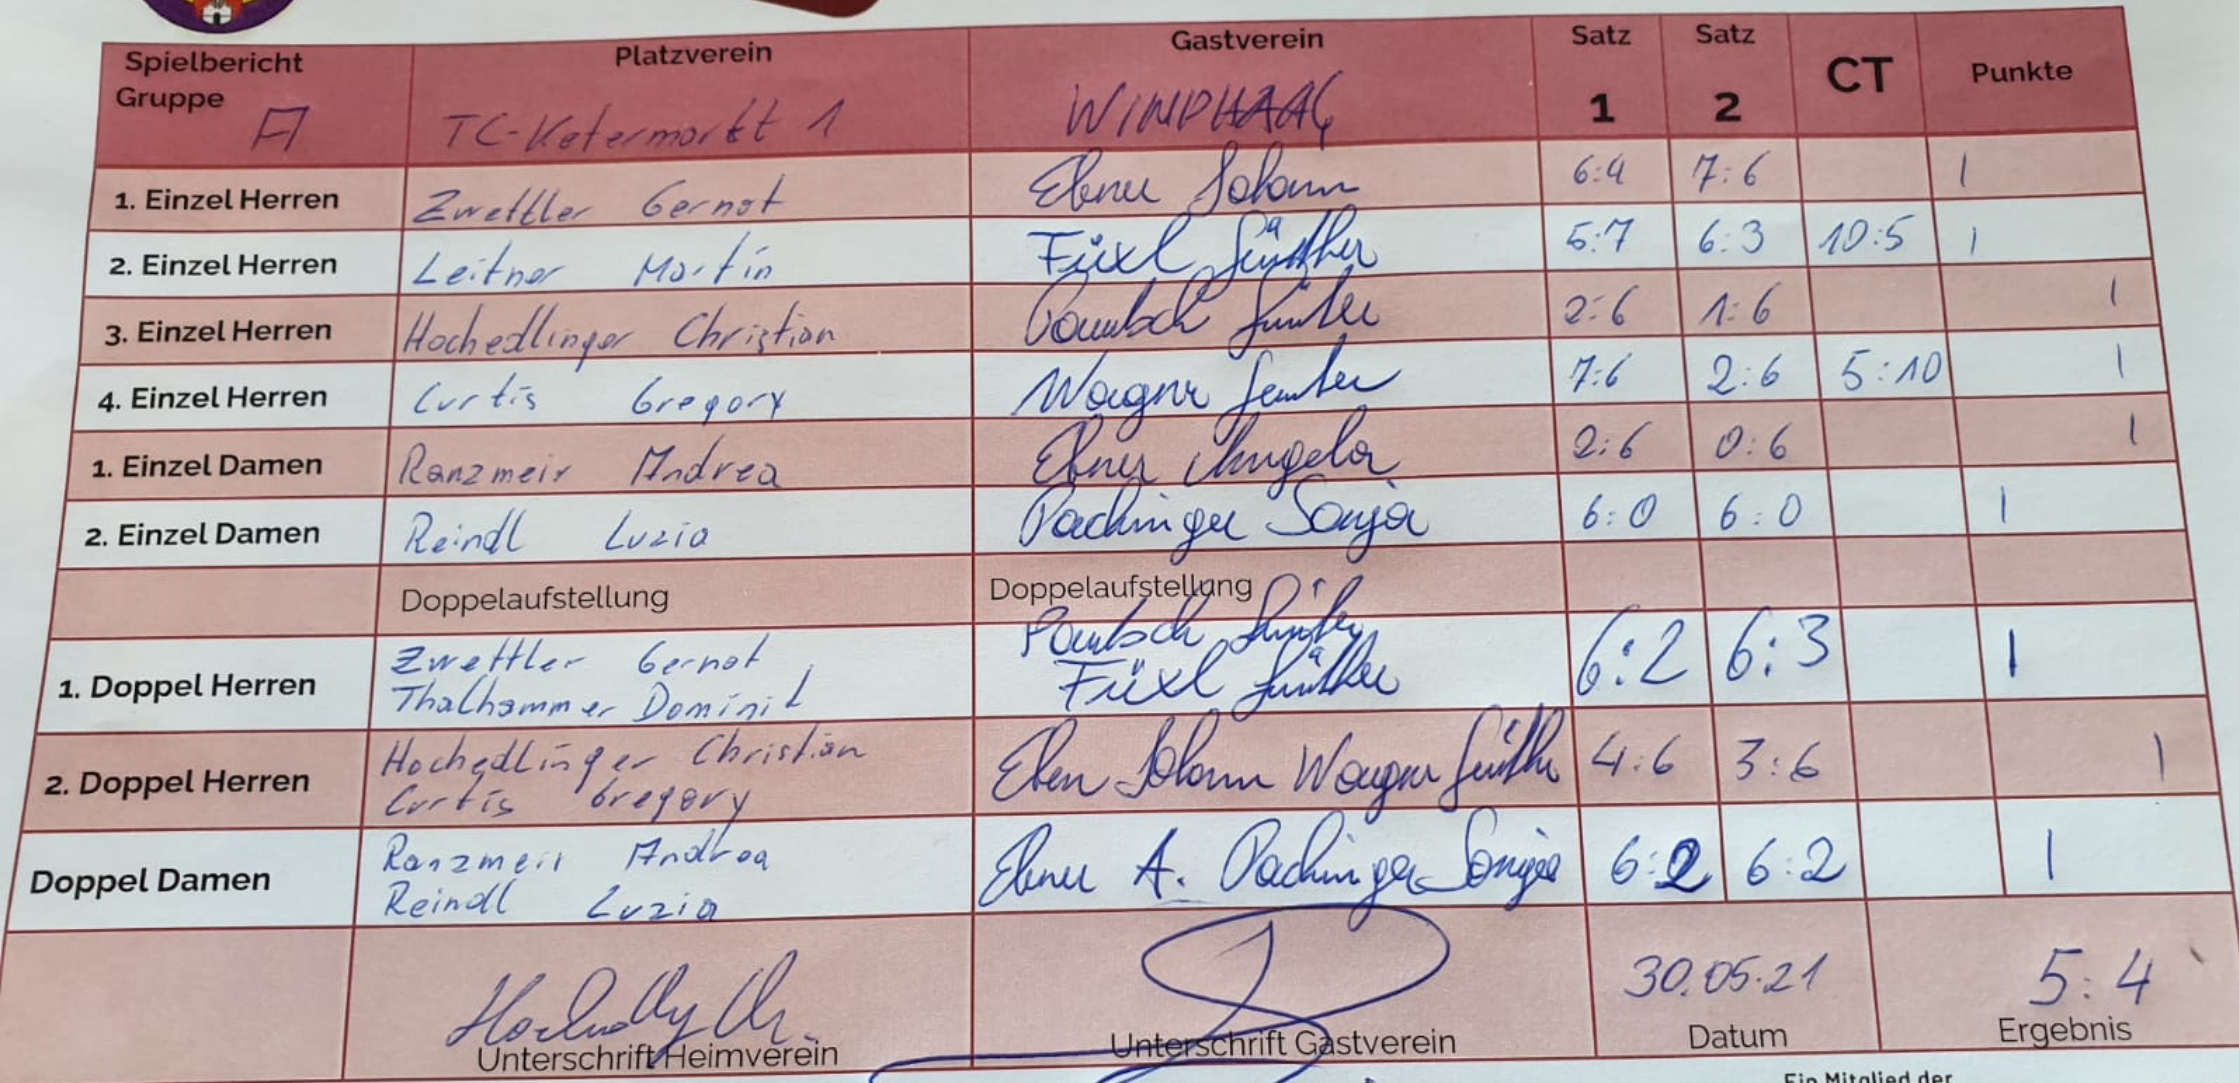 Spielbericht Gruppe A Platzverein TC-Kefermarkt 1 Gastverein WINDHAAG Satz 1 Satz 2 CT Punkte
1. Einzel Herren Zwettler Gernot Ebner Johann 6:4 7:6 1
2. Einzel Herren Leitner Martin Füxl Günther 5:7 6:3 10:5 1
3. Einzel Herren Hochedlinger Christian Günter 2:6 1:6 1
4. Einzel Herren Curtis Gregory Wagner Günter 7:6 2:6 5:10 1
1. Einzel Damen Ranzmeir Andrea Ebner Angela 2:6 0:6 1
2. Einzel Damen Reindl Luzia Pachinger Sonja 6:0 6:0 1
Doppelaufstellung Doppelaufstellung
1. Doppel Herren Zwettler Gernot Günter 6:2 6:3 1
Thalhammer Dominik Füxl Günther
2. Doppel Herren Hochedlinger Christian Ebner Johann Wagner Günther 4:6 3:6 1
Curtis Gregory
Doppel Damen Ranzmeir Andrea Ebner A. Pachinger Sonja 6:2 6:2 1
Reindl Luzia
30.05.21 5:4
Unterschrift Heimverein Unterschrift Gastverein Datum Ergebnis
Ein Mitglied der